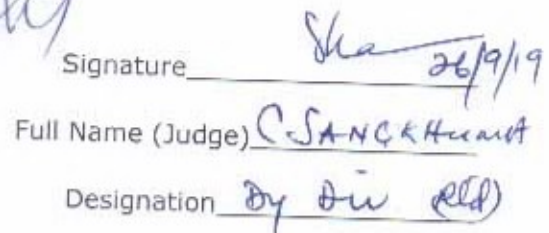 Signature 26/9/19
Full Name (Judge) C. SANGKHUMA
Designation Dy Dir (Rtd)